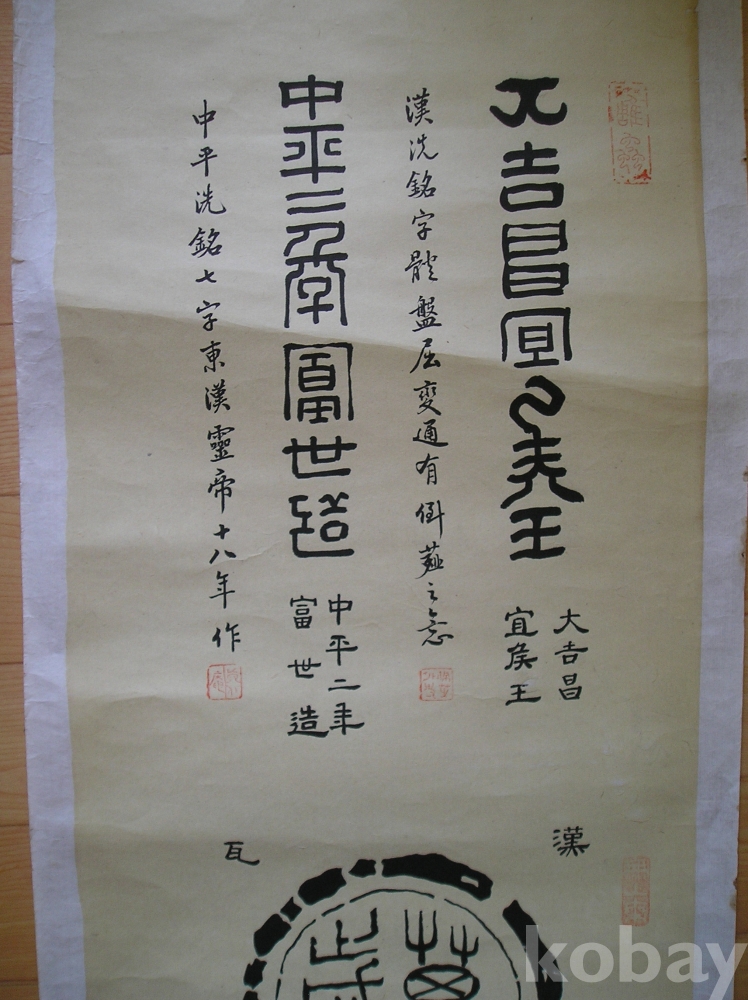 大吉昌宜侯王
大吉昌
宜侯王
漢洗銘字體盤屈變通有倒薤之意
中平二年富世造
中平二年
富世造
中平洗銘七字東漢靈帝十八年作
漢
瓦
萬
歲
kobay